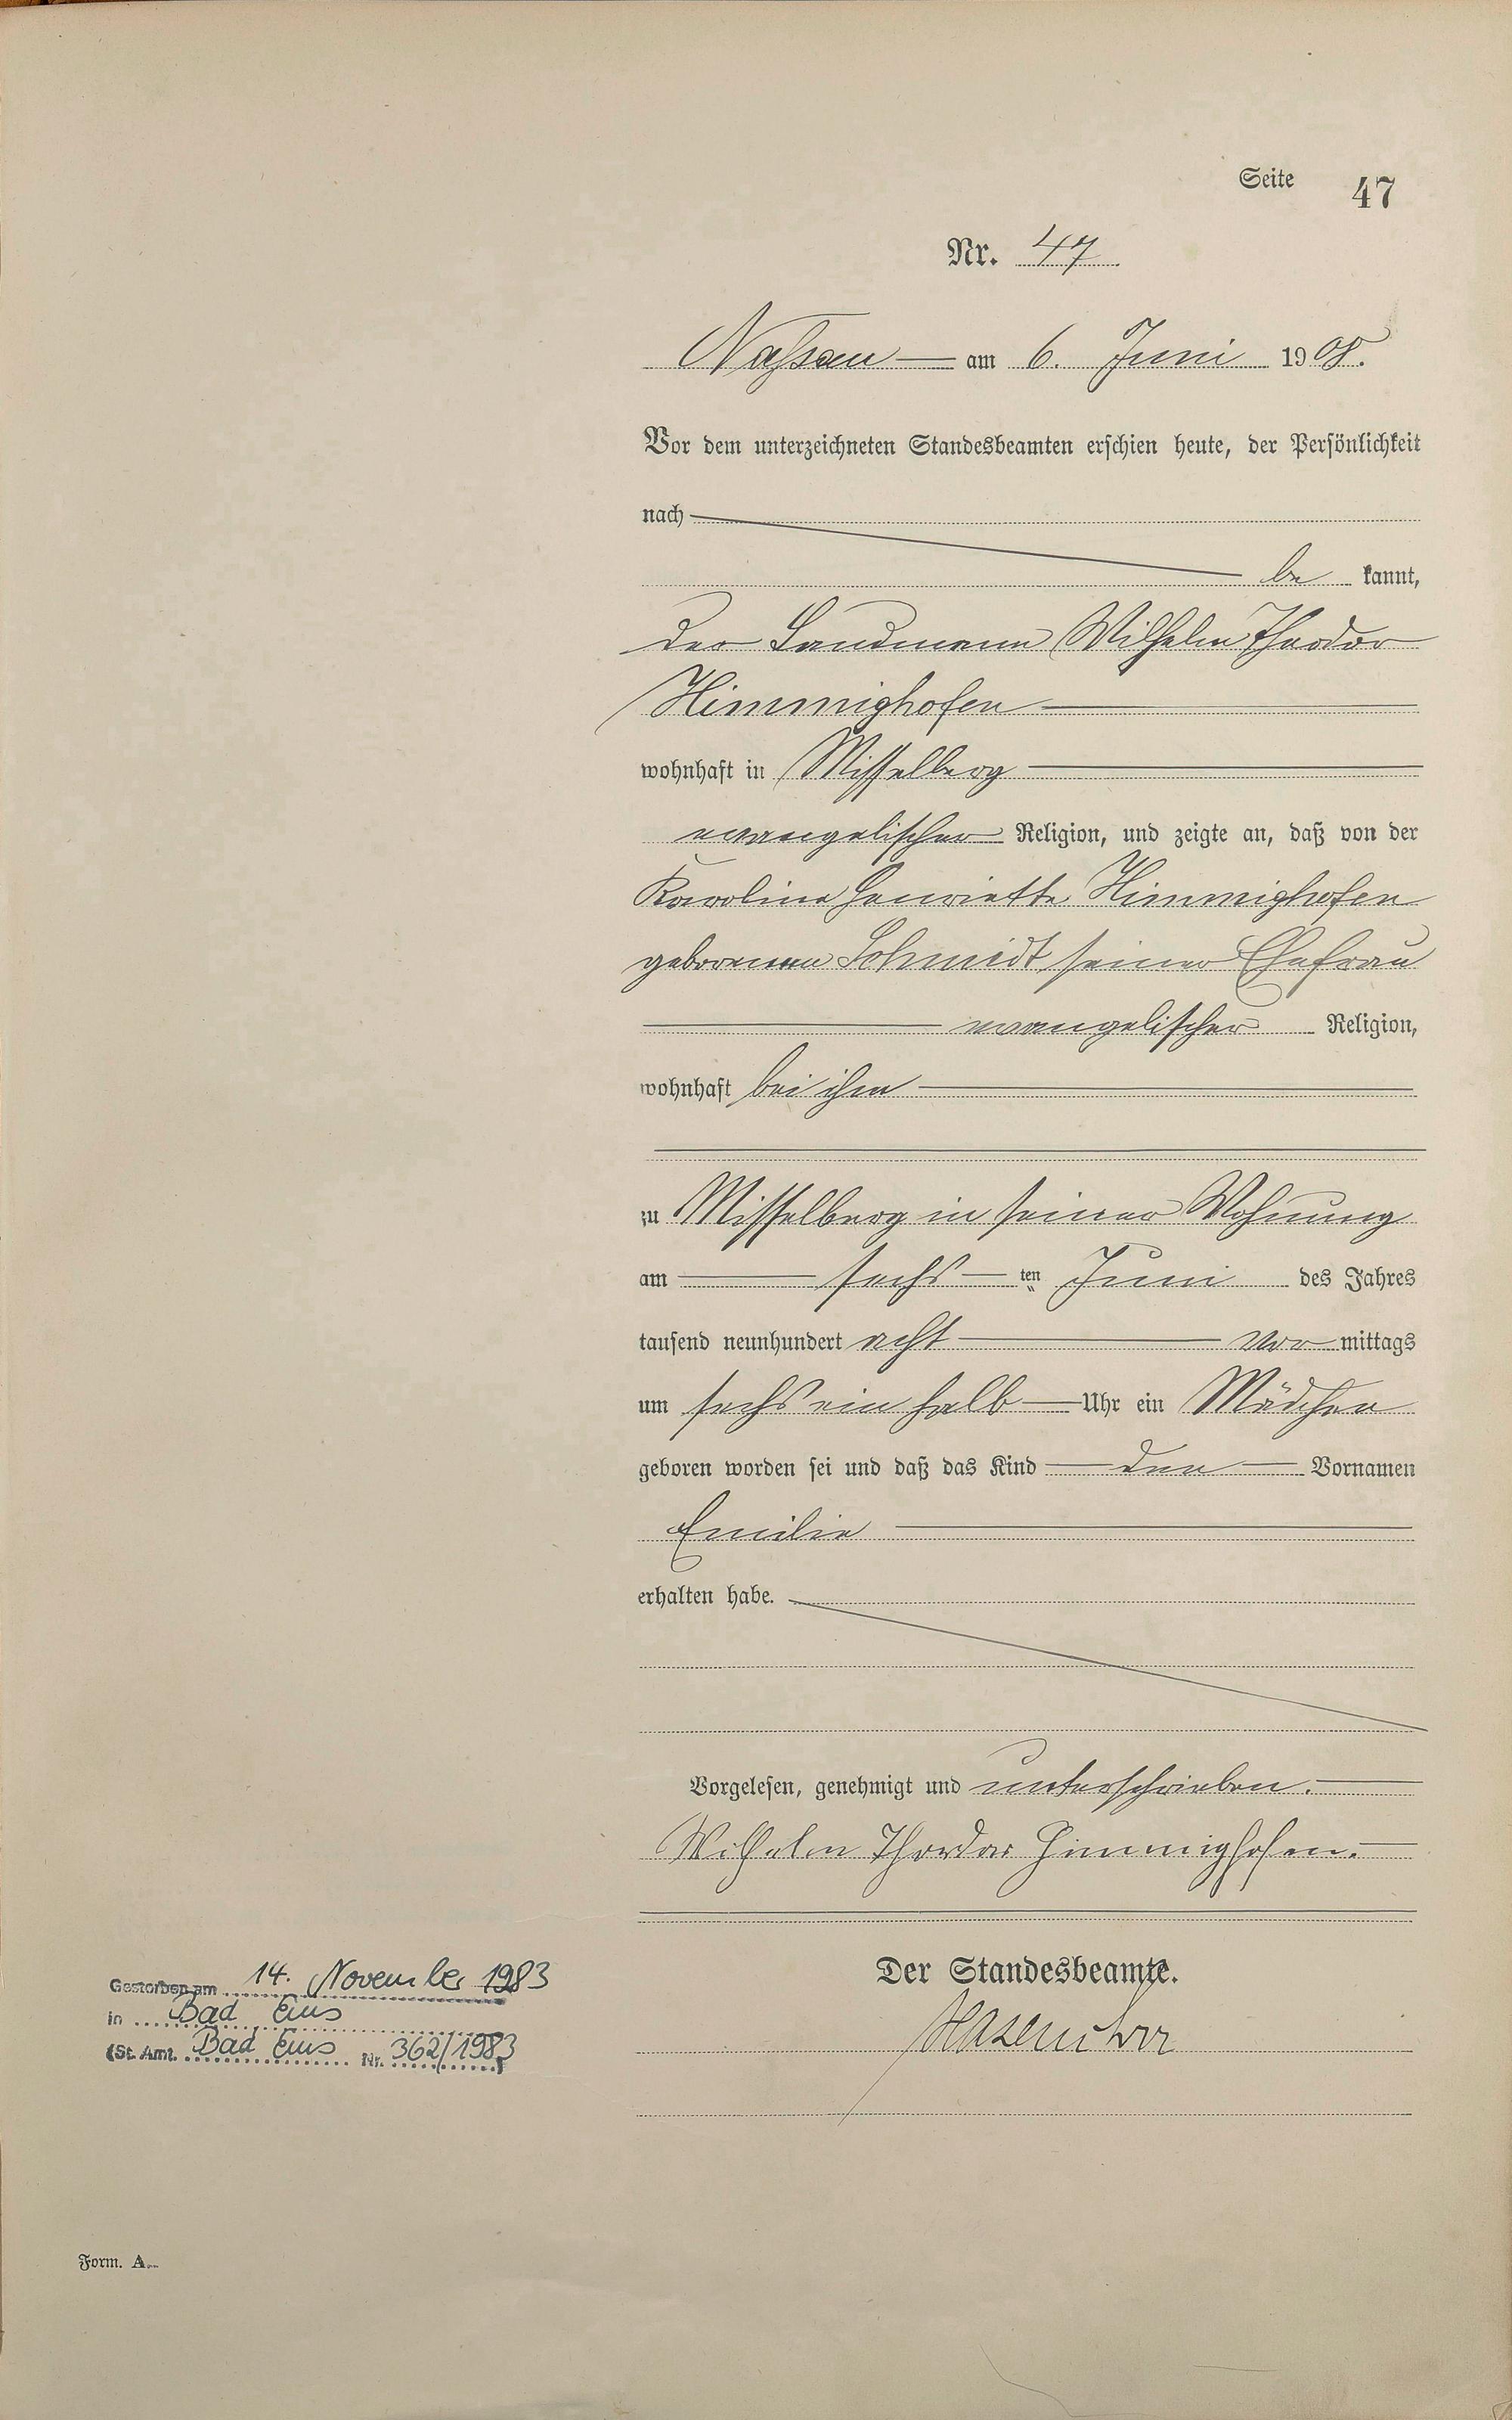 Seite 47
Nr. 47
Nassau am 6. Juni 1908.
Vor dem unterzeichneten Standesbeamten erschien heute, der Persönlichkeit
nach
be kannt,
der Landmann Wilhelm Theodor
Himmighofen
wohnhaft in Misselberg
evangelischer Religion, und zeigte an, daß von der
Karoline Henriette Himmighofen
geborenen Schmidt seiner Ehefrau
evangelischer Religion,
wohnhaft bei ihm
zu Misselberg in seiner Wohnung
am sechs ten Juni des Jahres
tausend neunhundert acht vor mittags
um sechs ein halb Uhr ein Mädchen
geboren worden sei und daß das Kind den Vornamen
Emilie
erhalten habe.
Vorgelesen, genehmigt und unterschrieben.
Wilhelm Theodor Himmighofen.
Der Standesbeamte.
Gestorben am 14. November 1983
in Bad Ems
(St. Amt. Bad Ems Nr. 362/1983)
Form. A.